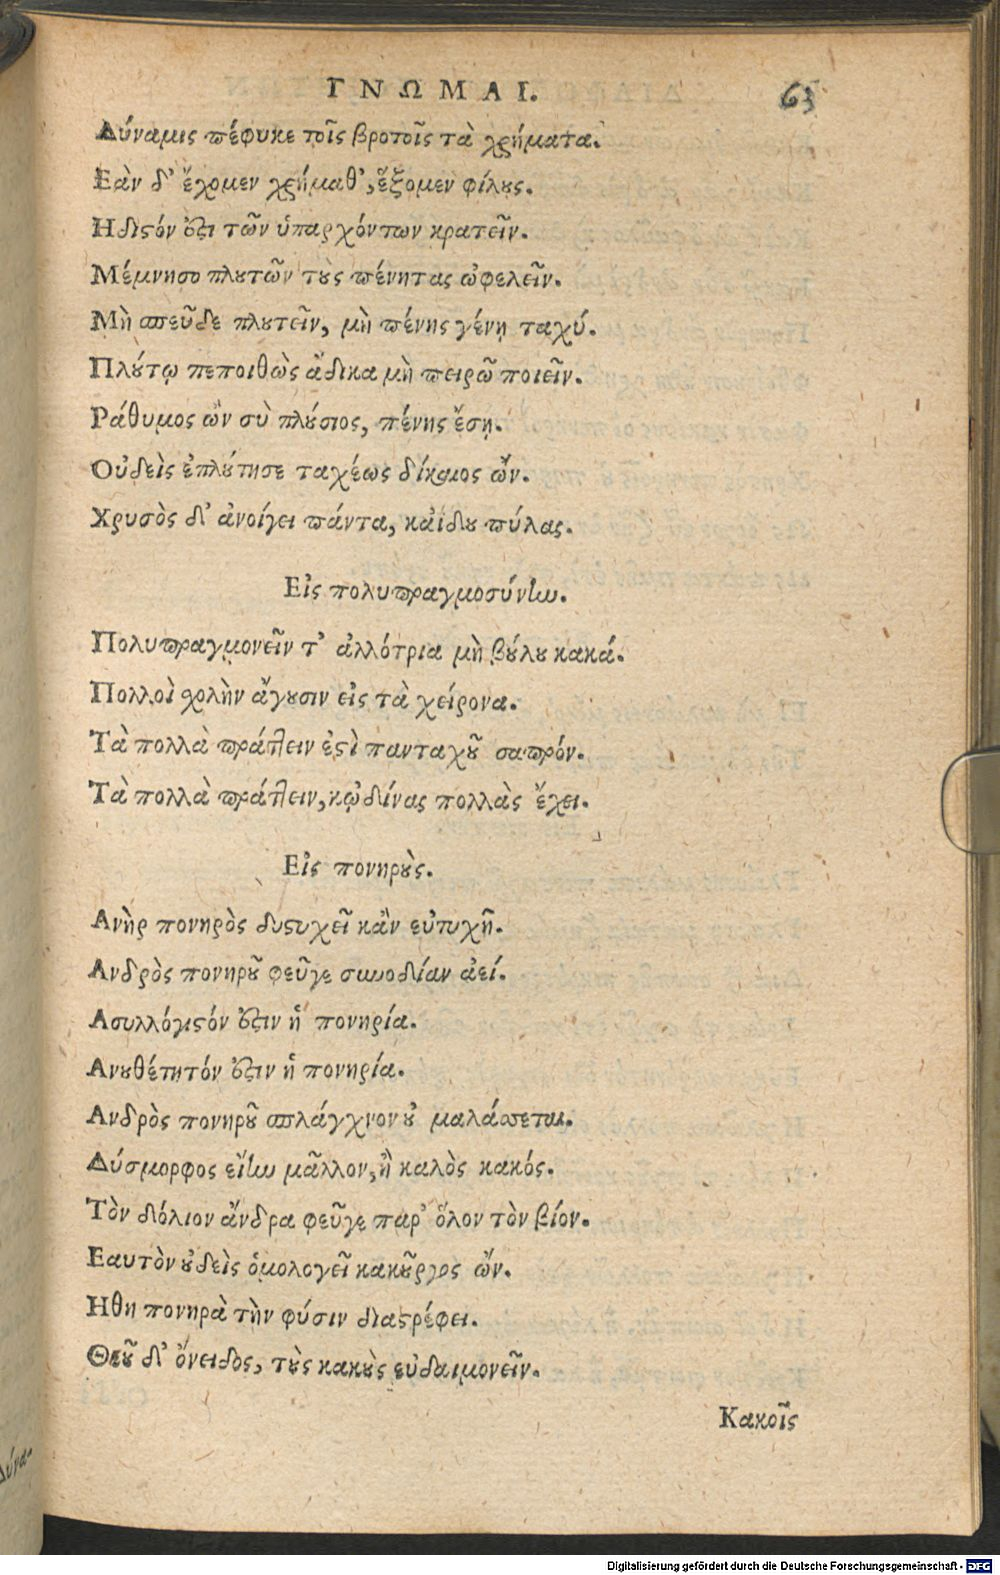 ΓΝΩΜΑΙ. 63
Δύναμις πέφυκε τοῖς βροτοῖς τὰ χρήματα.
Εὰν δ' ἔχομεν χρήμαθ', ἕξομεν φίλους.
Ηδιστόν ἐστι τῶν ὑπαρχόντων κρατεῖν.
Μέμνησο πλουτῶν τοὺς πένητας ὠφελεῖν.
Μὴ σπεῦδε πλουτεῖν, μὴ πένης γένῃ ταχύ.
Πλούτῳ πεποιθὼς ἄδικα μὴ πειρῶ ποιεῖν.
Ράθυμος ὢν σὺ πλούσιος, πένης ἔσῃ.
Οὐδεὶς ἐπλούτησε ταχέως δίκαιος ὤν.
Χρυσὸς δ' ἀνοίγει πάντα, κἀίδου πύλας.
Εἰς πολυπραγμοσύνην.
Πολυπραγμονεῖν τ' ἀλλότρια μὴ βούλου κακά.
Πολλοὶ χολὴν ἄγουσιν εἰς τὰ χείρονα.
Τὰ πολλὰ πράττειν ἐστὶ πανταχοῦ σαπρόν.
Τὰ πολλὰ πράττειν, κᾠδίνας πολλὰς ἔχει.
Εἰς πονηρούς.
Ανὴρ πονηρὸς δυστυχεῖ κἂν εὐτυχῇ.
Ανδρὸς πονηροῦ φεῦγε συνοδίαν ἀεί.
Ασυλλόγιστόν ἐστιν ἡ πονηρία.
Ανουθέτητόν ἐστιν ἡ πονηρία.
Ανδρὸς πονηροῦ σπλάγχνον οὐ μαλάσσεται.
Δύσμορφος εἴην μᾶλλον, ἢ καλὸς κακός.
Τὸν δόλιον ἄνδρα φεῦγε παρ' ὅλον τὸν βίον.
Εαυτὸν οὐδεὶς ὁμολογεῖ κακοῦργος ὤν.
Ηθη πονηρὰ τὴν φύσιν διαστρέφει.
Θεοῦ δ' ὄνειδος, τοὺς κακοὺς εὐδαιμονεῖν.
Κακοῖς
Δύνα-
Digitalisierung gefördert durch die Deutsche Forschungsgemeinschaft - DFG